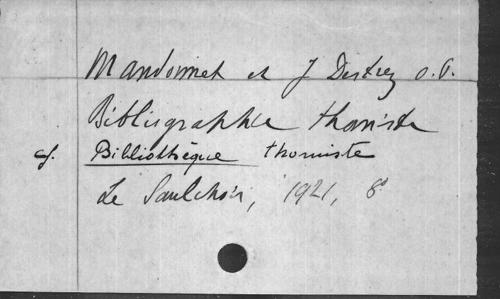 Mandonnet et J Destrez O.P.
Bibliographie thomiste
cf. Bibliothèque thomiste
Le Saulchoir, 1921, 8°